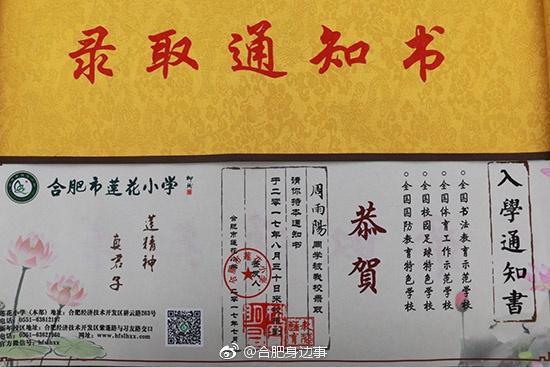 录取通知书
入學通知書
全国书法教育示范学校
全国体育工作示范学校
全国校园足球特色学校
全国国防教育特色学校
恭賀
周雨陽 同学被我校录取
请你持本通知书
于二〇一七年八月三十日来校
签发人
合肥市莲花小学
二〇一七年七月
合肥市莲花小学
莲精神
真君子
莲花小学（本部）地址：合肥经济技术开发区耕云路263号
电话：0551-63812181
地址：合肥经济技术开发区紫蓬路与习友路交口
电话：0551-63621968
官方网站：www.hfslhxx.com
官方微信号：hfslhxx
@合肥身边事